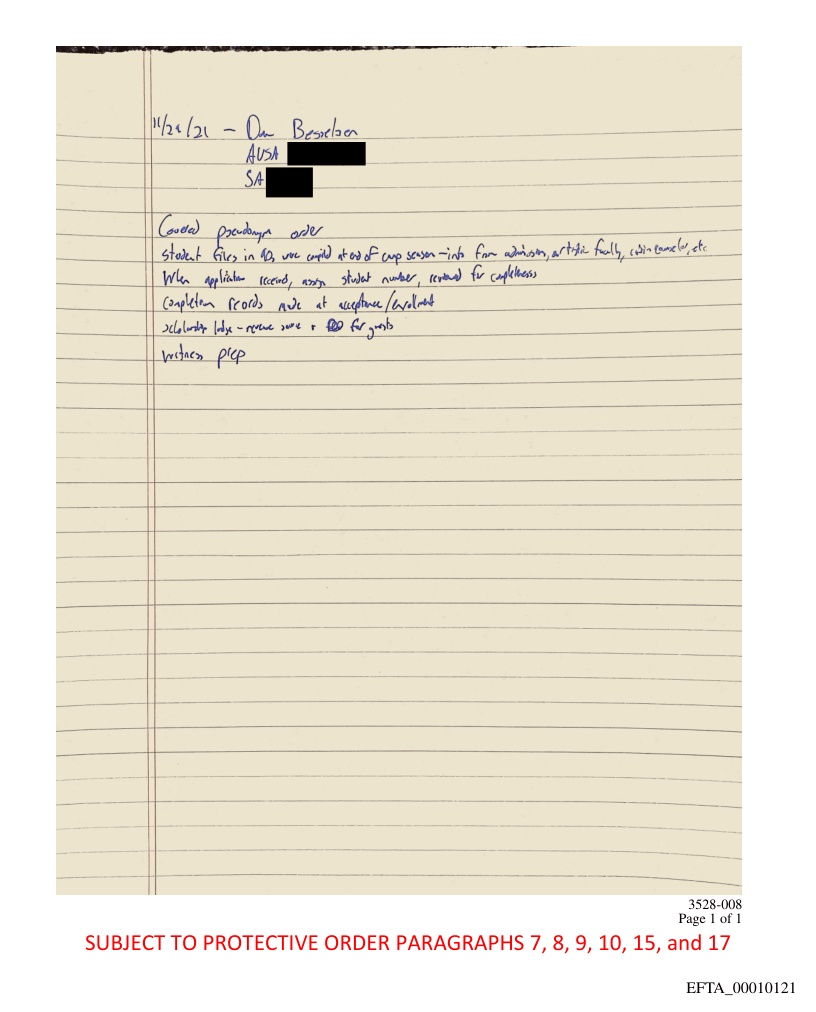 11/29/21 - Dan Besselsen
AUSA
SA
Covered pseudonym order
Student files in 90s were compiled at end of camp season - info from admissions, artistic faculty, cabin counselor, etc
When application received, assign student number, reviewed for completeness
Completion records made at acceptance/enrollment
scholarship lodge - revenue source + for guests
witness prep
3528-008
Page 1 of 1
SUBJECT TO PROTECTIVE ORDER PARAGRAPHS 7, 8, 9, 10, 15, and 17
EFTA_00010121